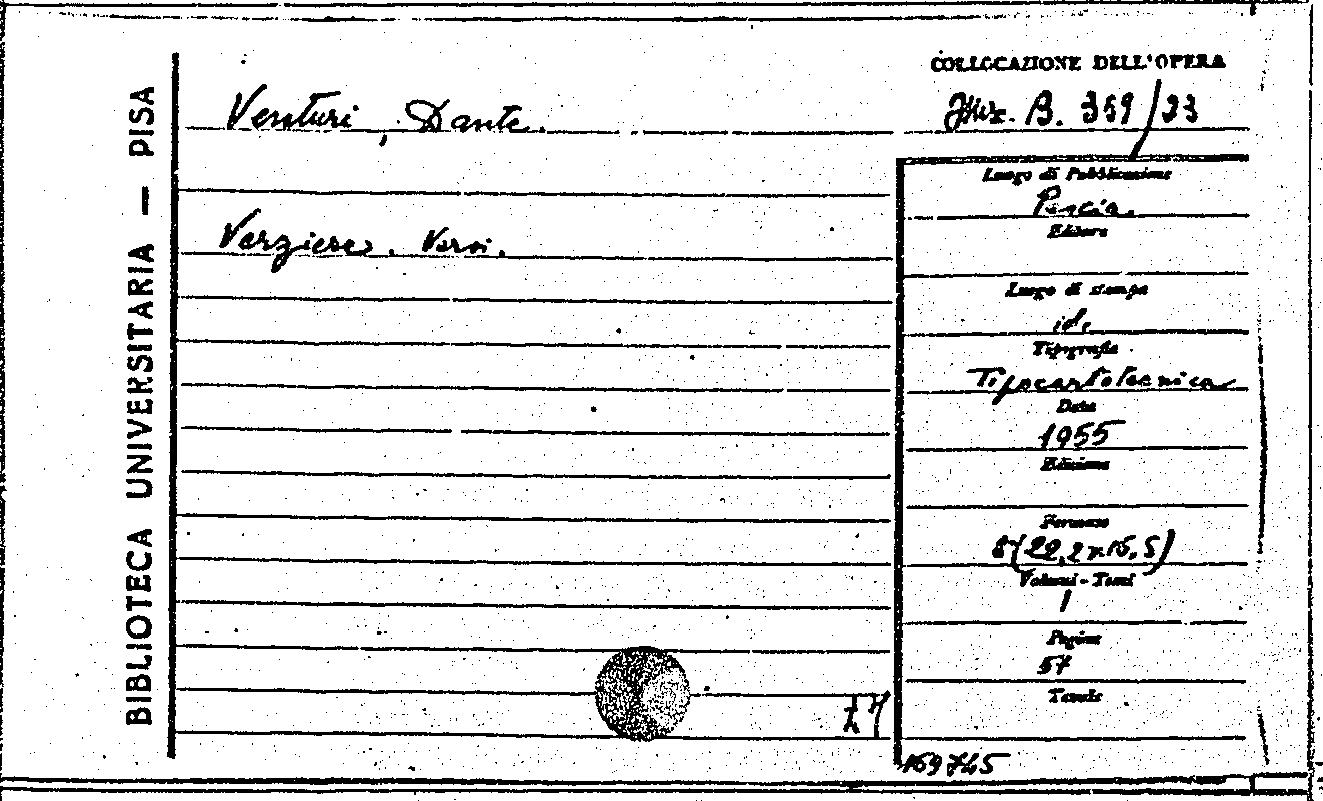 BIBLIOTECA UNIVERSITARIA — PISA
Venturi, Dante.
Verziere. Versi.
COLLOCAZIONE DELL'OPERA
B. 359/23
Luogo di Pubblicazione
Pescia.
Editore
Luogo di stampa
id.
Tipografia
Tipocartotecnica
Data
1955
Edizione
Formato
8°(22,2x15,5)
Volumi - Tomi
1
Pagine
57
Tavole
169745